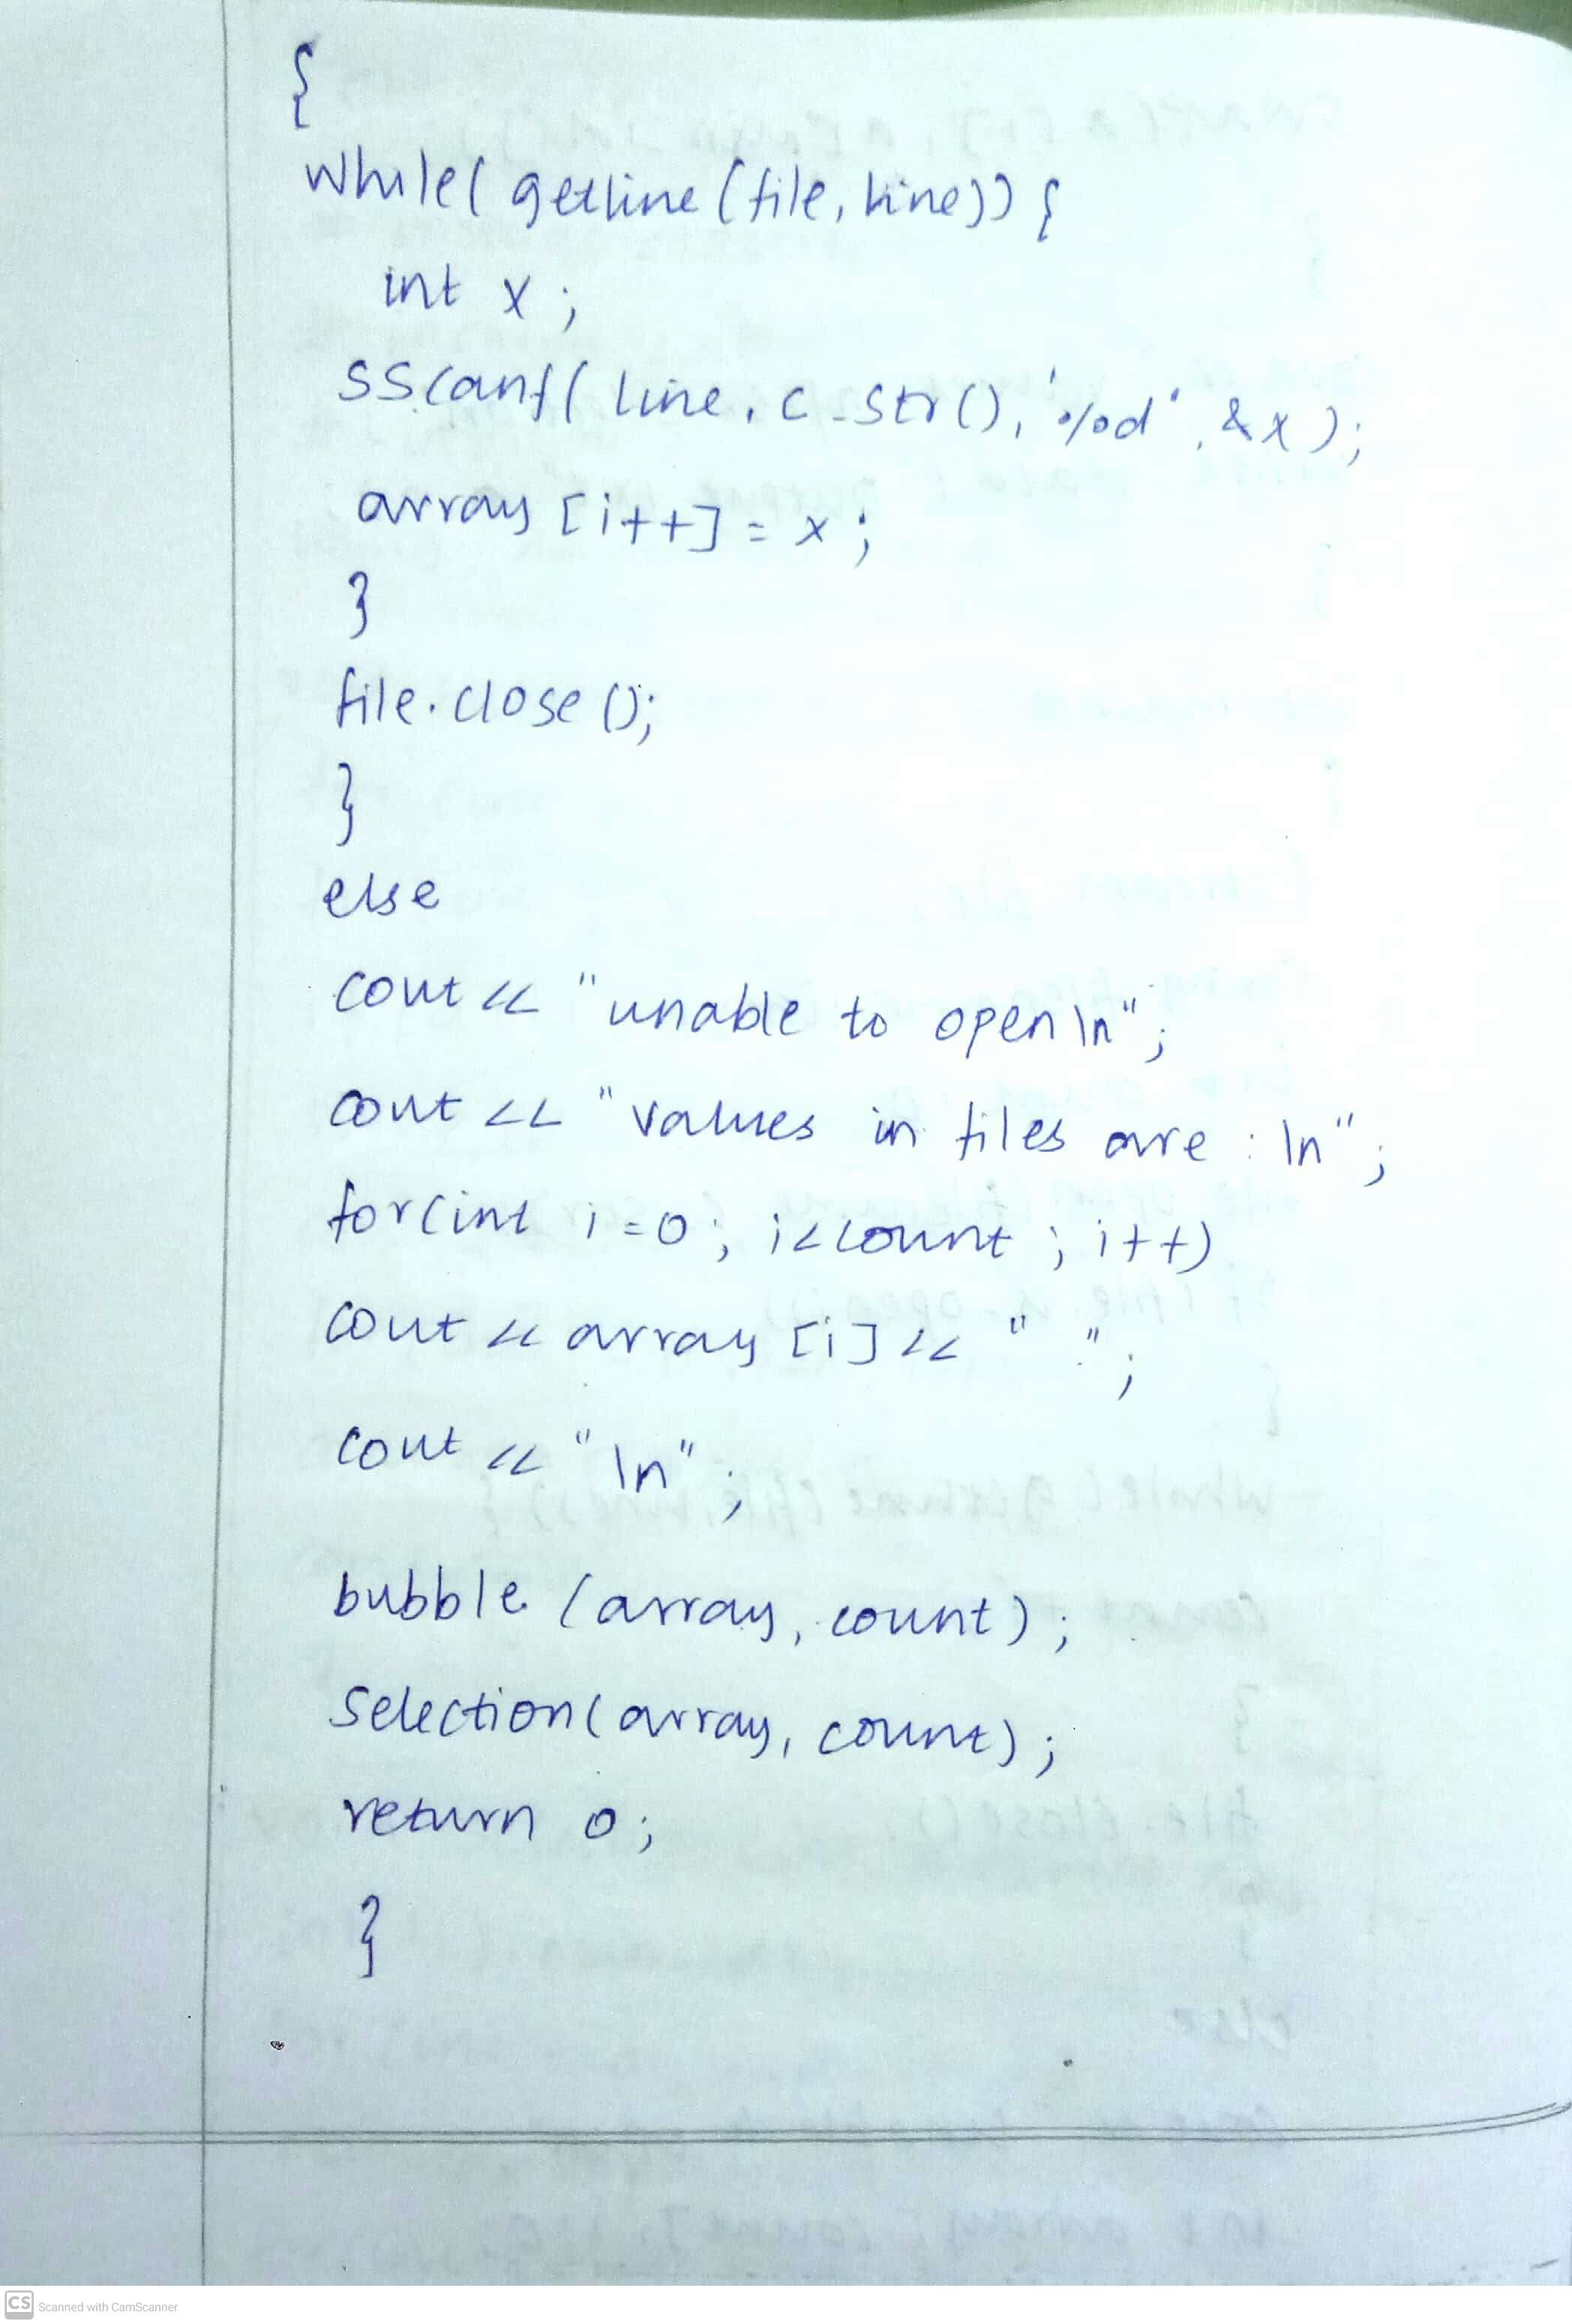 {
while( getline (file, line)) {
int x ;
sscanf( line . c_str(), '%d' , &x );
array [i++] = x ;
}
file.close ();
}
else
cout << "unable to open\n" ;
cout << "values in files are : \n" ;
for(int i=0 ; i<count ; i++)
cout << array [i] << " " ;
cout << "\n" ;
bubble (array, count) ;
selection(array, count) ;
return 0 ;
}
CS Scanned with CamScanner